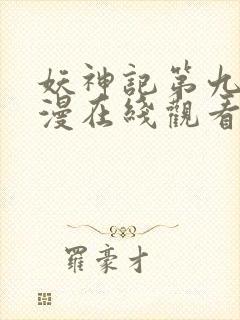 妖神記第九
漫在綫觀看
羅豪才